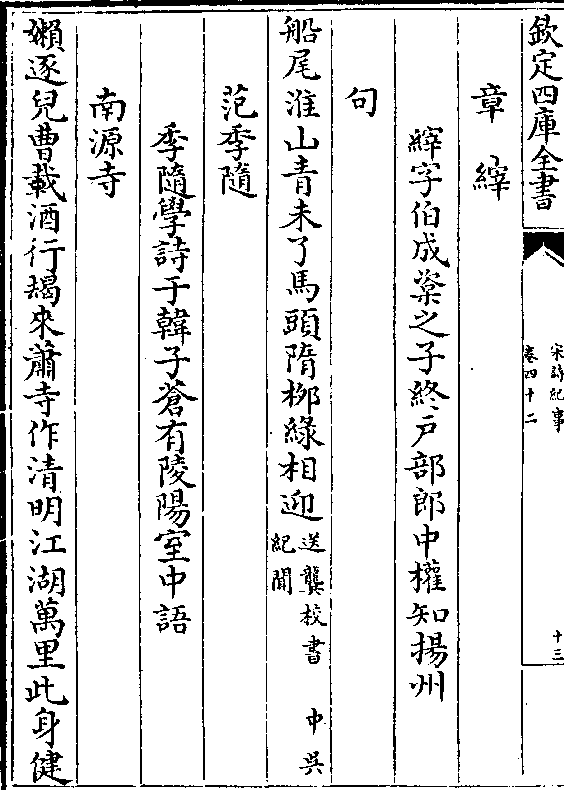 欽定四庫全書
宋詩紀事
卷四十二
十三
章縡
縡字伯成楶之子終戶部郎中權知揚州
句
船尾淮山青未了馬頭隋栁綠相迎送龔校書 中吳紀聞
范季隨
季隨學詩于韓子蒼有陵陽室中語
南源寺
嬾逐兒曹載酒行朅來蕭寺作清明江湖萬里此身健